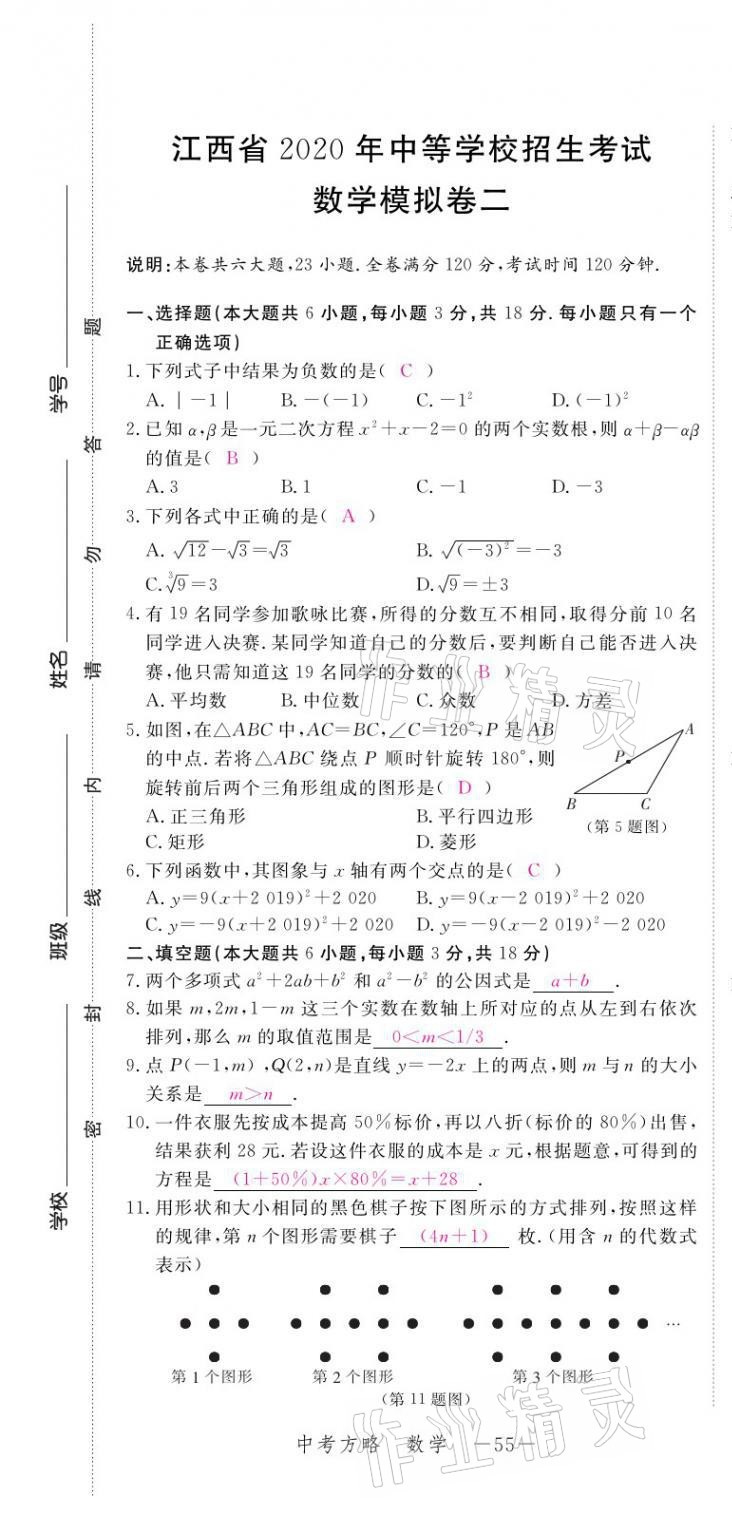 江西省 2020 年中等学校招生考试
数学模拟卷二
说明:本卷共六大题,23 小题.全卷满分 120 分,考试时间 120 分钟.
一、选择题(本大题共 6 小题,每小题 3 分,共 18 分.每小题只有一个
正确选项)
1.下列式子中结果为负数的是( C )
A.|-1| B.-(-1) C.-1² D.(-1)²
2.已知 α,β是一元二次方程 x²+x-2=0 的两个实数根,则 α+β-αβ
的值是( B )
A.3 B.1 C.-1 D.-3
3.下列各式中正确的是( A )
A.√12-√3=√3 B.√(-3)²=-3
C.∛9=3 D.√9=±3
4.有 19 名同学参加歌咏比赛,所得的分数互不相同,取得分前 10 名
同学进入决赛.某同学知道自己的分数后,要判断自己能否进入决
赛,他只需知道这 19 名同学的分数的( B )
A.平均数 B.中位数 C.众数 D.方差
5.如图,在△ABC 中,AC=BC,∠C=120°,P 是 AB
的中点.若将△ABC 绕点 P 顺时针旋转 180°,则
旋转前后两个三角形组成的图形是( D )
A.正三角形 B.平行四边形
C.矩形 D.菱形
A
P
B C
(第 5 题图)
6.下列函数中,其图象与 x 轴有两个交点的是( C )
A.y=9(x+2 019)²+2 020 B.y=9(x-2 019)²+2 020
C.y=-9(x+2 019)²+2 020 D.y=-9(x-2 019)²-2 020
二、填空题(本大题共 6 小题,每小题 3 分,共 18 分)
7.两个多项式 a²+2ab+b² 和 a²-b² 的公因式是 a+b .
8.如果 m,2m,1-m 这三个实数在数轴上所对应的点从左到右依次
排列,那么 m 的取值范围是 0<m<1/3 .
9.点 P(-1,m),Q(2,n)是直线 y=-2x 上的两点,则 m 与 n 的大小
关系是 m>n .
10.一件衣服先按成本提高 50%标价,再以八折(标价的 80%)出售,
结果获利 28 元.若设这件衣服的成本是 x 元,根据题意,可得到的
方程是 (1+50%)x×80%=x+28 .
11.用形状和大小相同的黑色棋子按下图所示的方式排列,按照这样
的规律,第 n 个图形需要棋子 (4n+1) 枚.(用含 n 的代数式
表示)
…
第 1 个图形 第 2 个图形 第 3 个图形
(第 11 题图)
中考方略 数学 —55—
学校
班级
姓名
学号
密 封 线 内 请 勿 答 题
作业精灵
作业精灵